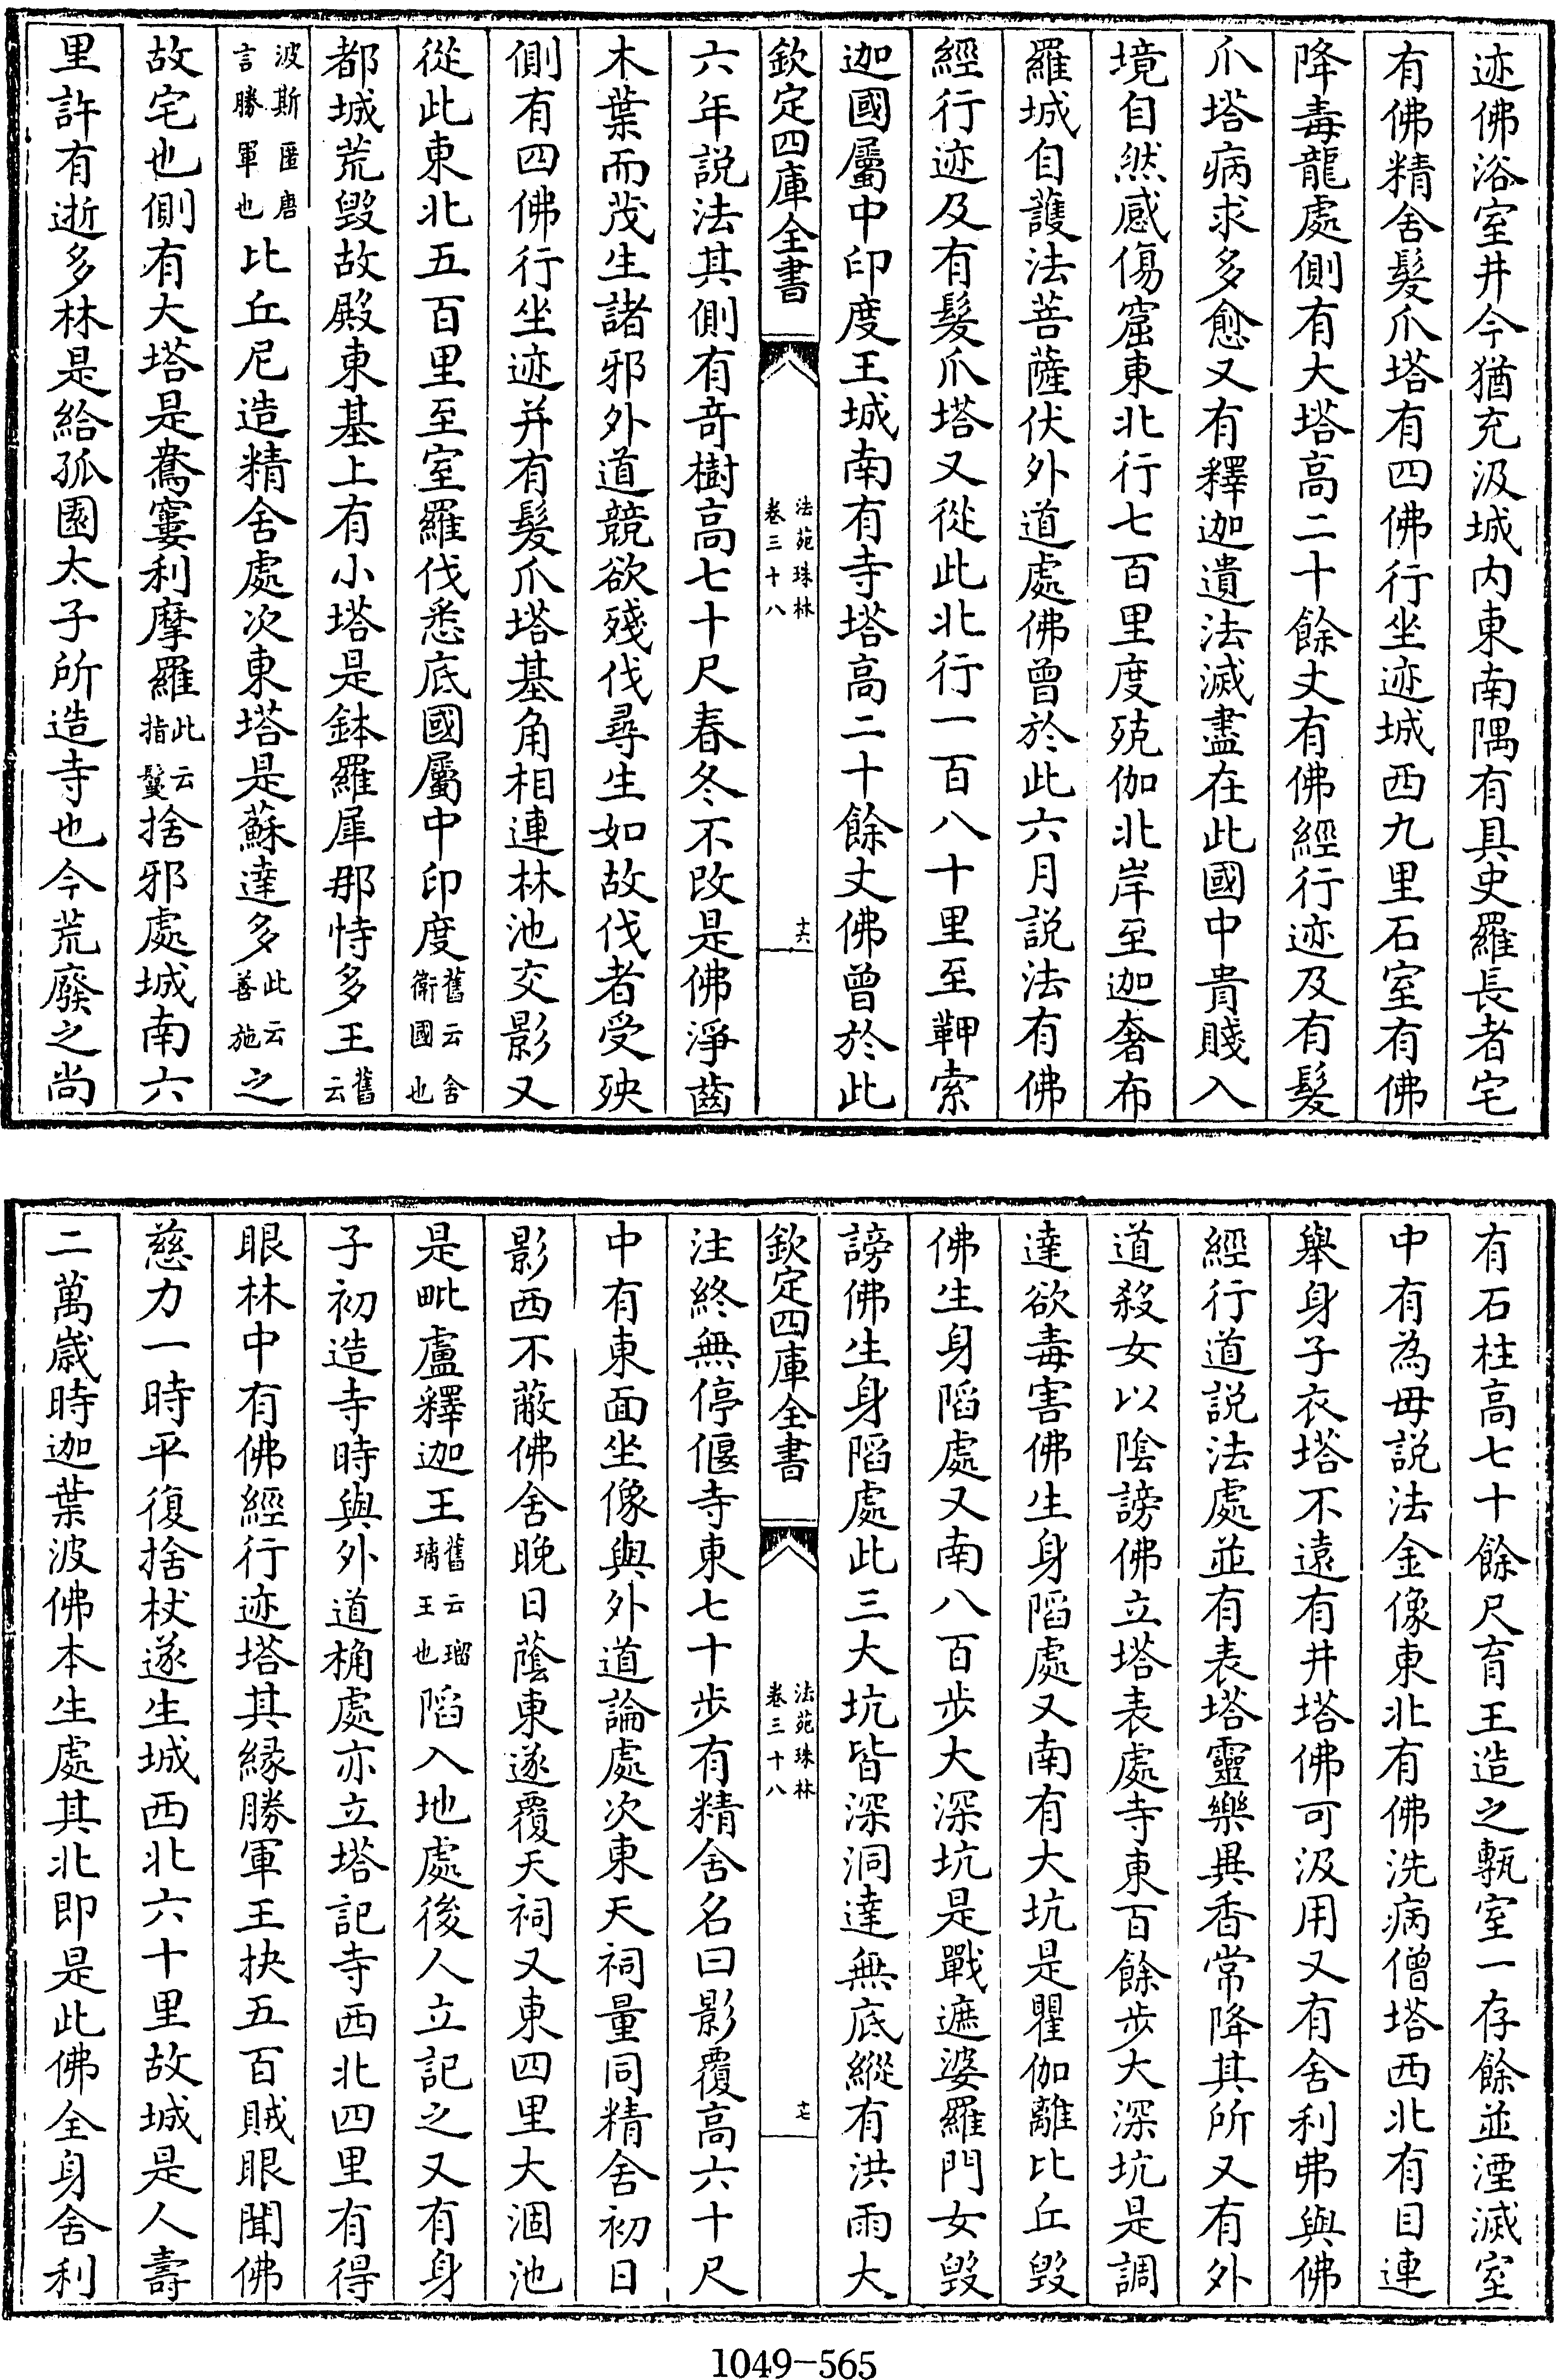 迹佛浴室井今猶充汲城内東南隅有具史羅長者宅
有佛精舍髮爪塔有四佛行坐迹城西九里石室有佛
降毒龍處側有大塔高二十餘丈有佛經行迹及有髮
爪塔病求多愈又有釋迦遺法滅盡在此國中貴賤入
境自然感傷窟東北行七百里度殑伽北岸至迦奢布
羅城自護法菩薩伏外道處佛曾於此六月説法有佛
經行迹及有髮爪塔又從此北行一百八十里至鞞索
迦國屬中印度王城南有寺塔高二十餘丈佛曾於此
欽定四庫全書 法苑珠林卷三十八 十六
六年説法其側有竒樹高七十尺春冬不改是佛淨齒
木葉而茂生諸邪外道競欲殘伐尋生如故伐者受殃
側有四佛行坐迹并有髮爪塔基角相連林池交影又
從此東北五百里至室羅伐悉底國屬中印度舊云舍衛國也
都城荒毀故殿東基上有小塔是鉢羅犀那恃多王舊云
波斯匿唐言勝軍也比丘尼造精舍處次東塔是蘇達多此云善施之
故宅也側有大塔是鴦窶利摩羅此云指鬘捨邪處城南六
里許有逝多林是給孤園太子所造寺也今荒廢之尚
有石柱高七十餘尺育王造之甎室一存餘並湮滅室
中有為母説法金像東北有佛洗病僧塔西北有目連
舉身子衣塔不遠有井塔佛可汲用又有舍利弗與佛
經行道説法處並有表塔靈樂異香常降其所又有外
道殺女以陰謗佛立塔表處寺東百餘步大深坑是調
達欲毒害佛生身陷處又南有大坑是瞿伽離比丘毀
佛生身陷處又南八百步大深坑是戰遮婆羅門女毀
謗佛生身陷處此三大坑皆深洞達無底縱有洪雨大
欽定四庫全書 法苑珠林卷三十八 十七
注終無停偃寺東七十步有精舍名曰影覆高六十尺
中有東面坐像與外道論處次東天祠量同精舍初日
影西不蔽佛舍晚日蔭東遂覆天祠又東四里大涸池
是毗盧釋迦王舊云瑠璃王也陷入地處後人立記之又有身
子初造寺時與外道桷處亦立塔記寺西北四里有得
眼林中有佛經行迹塔其縁勝軍王抉五百賊眼聞佛
慈力一時平復捨杖遂生城西北六十里故城是人壽
二萬歲時迦葉波佛本生處其北即是此佛全身舍利
1049-565